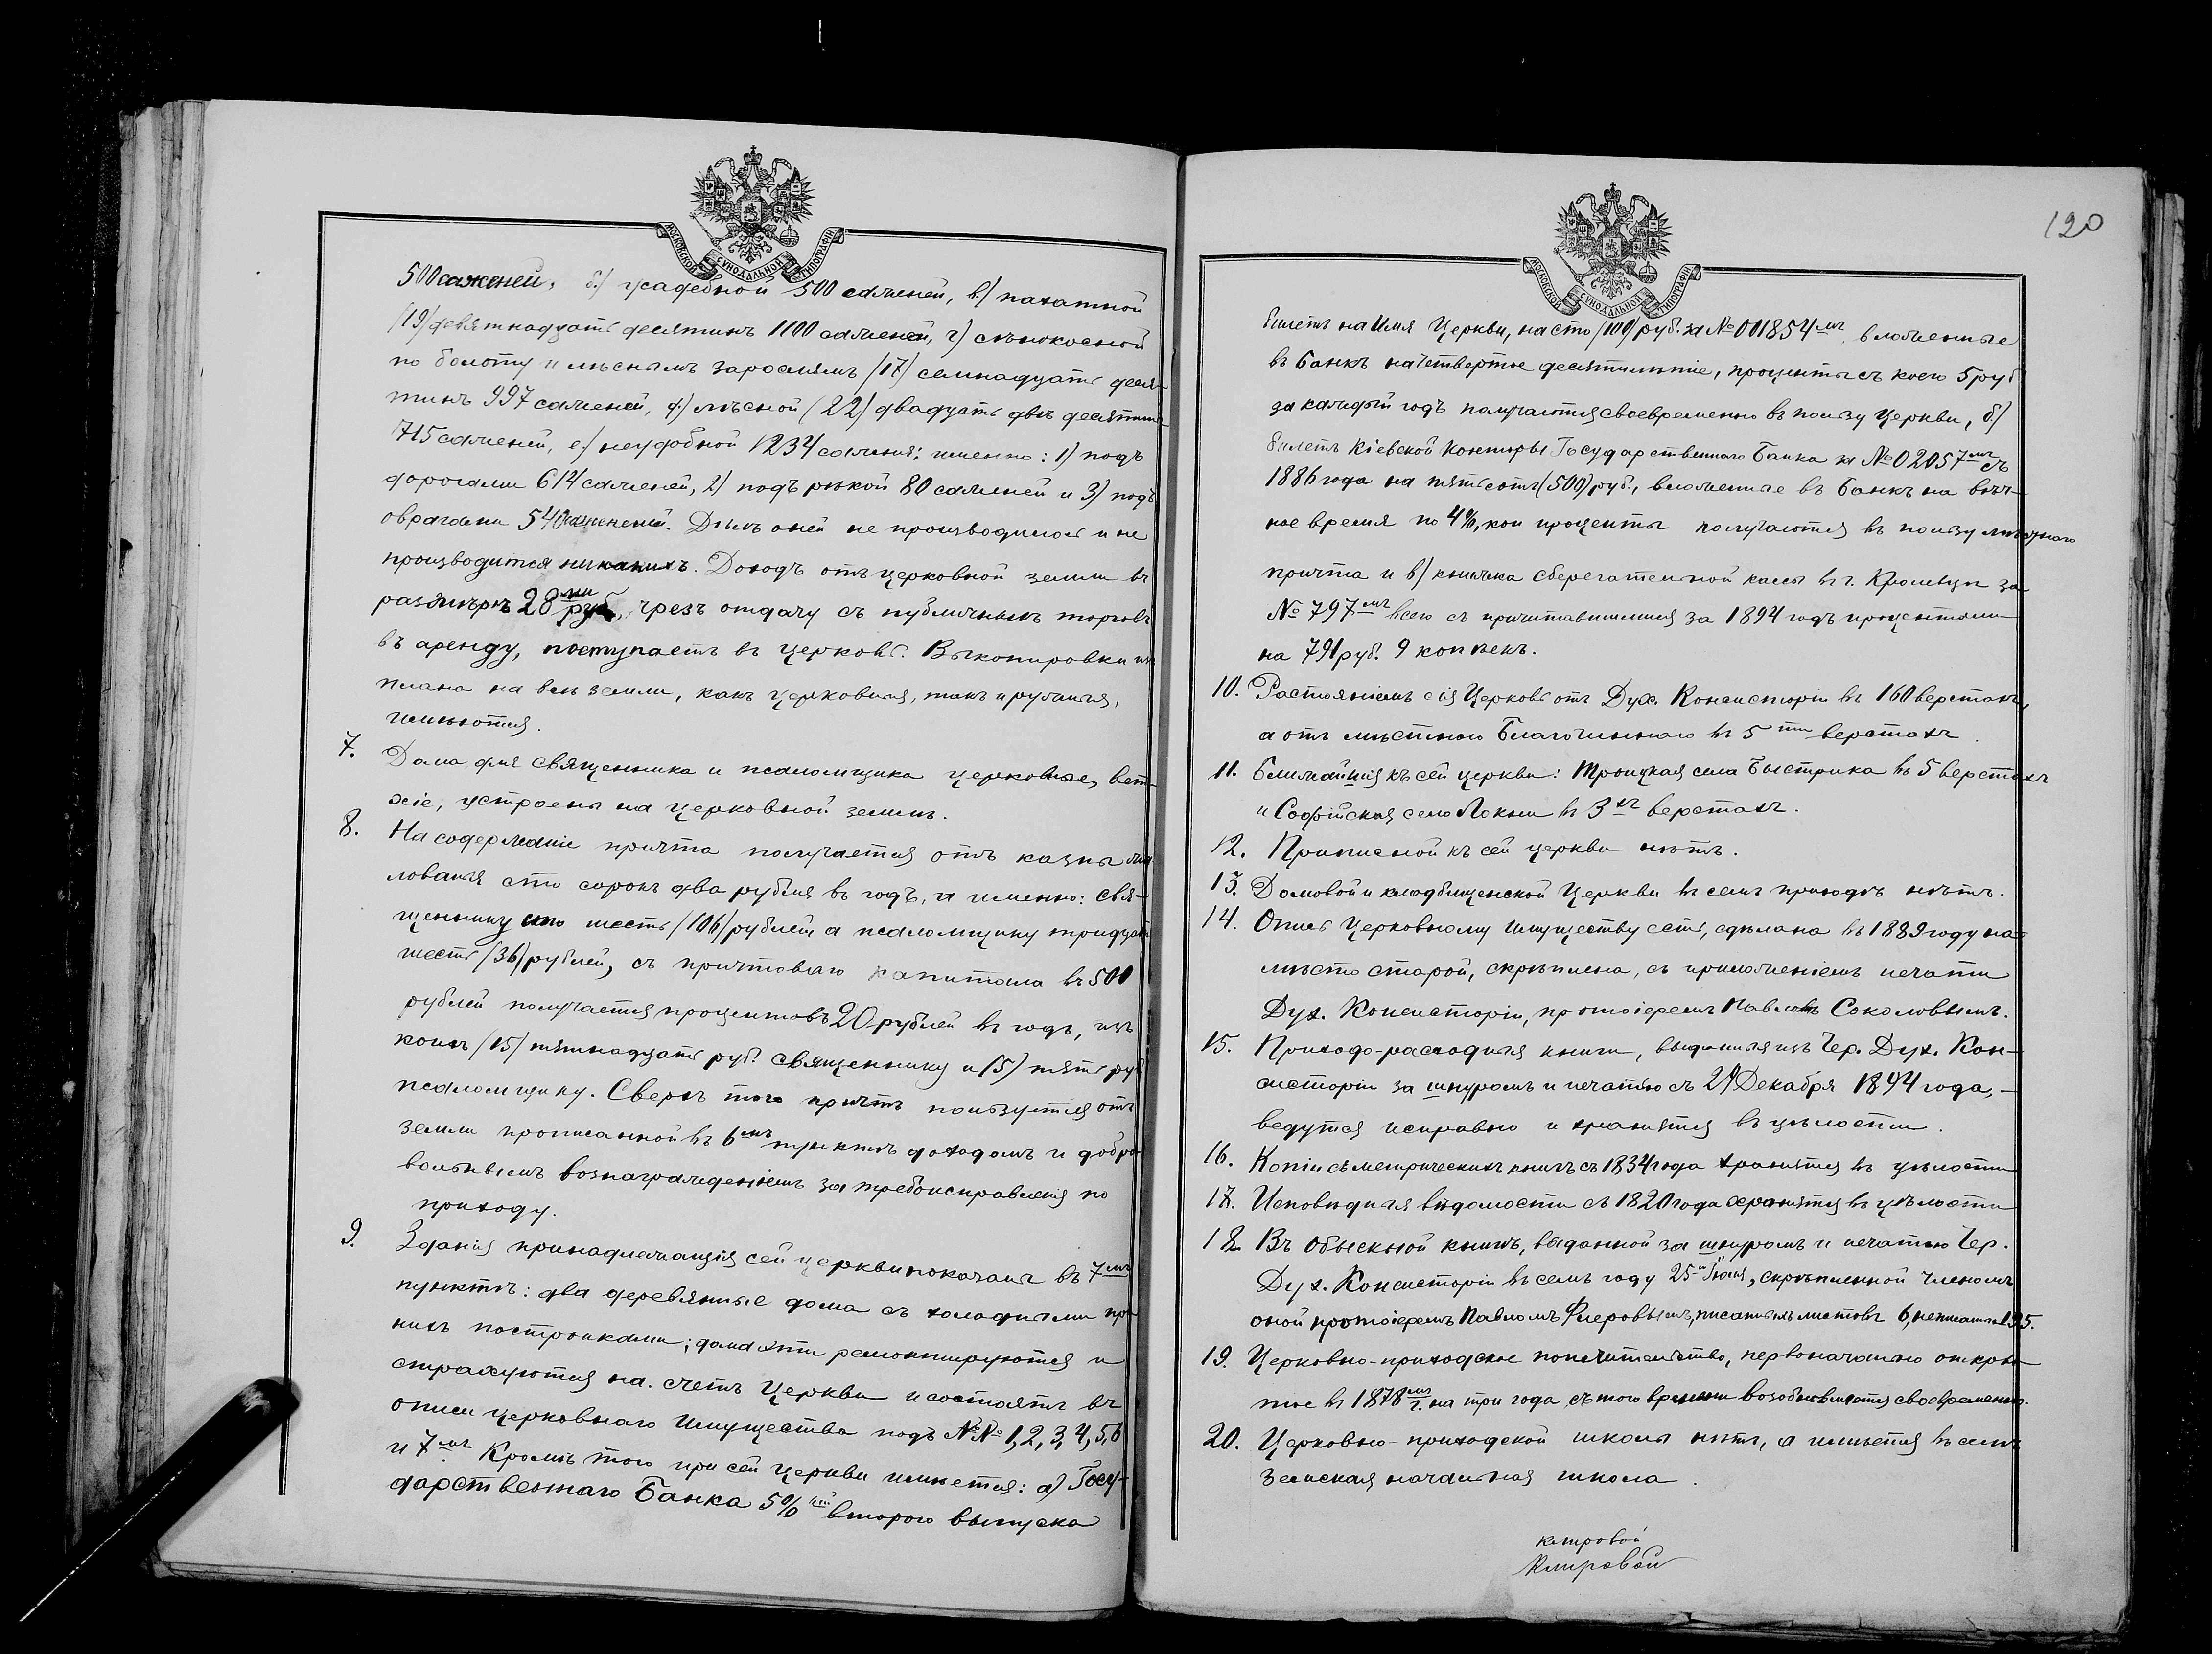 МОСКОВСКОЙ СѴНОДАЛЬНОЙ ТИПОГРАФІИ
500 саженей, б.) усадебной 500 саженей, в.) пахатной
/19/ девятнадцать десятинъ 1100 саженей, г) сѣнокосной
по болоту и лѣснымъ зарослямъ /17/ семнадцать деся-
тинъ 997 саженей, д.) лѣсной (22) двадцать двѣ десятины
715 саженей, е.) неудобной 1234 сажени; именно: 1) подъ
дорогами 614 саженей, 2) подъ рѣкой 80 саженей и 3) подъ
оврагами 540 саженей. Дѣлъ оней не производилось и не
производится никакихъ. Доходъ отъ церковной земли въ
размѣрѣ 28 ми руб., чрезъ отдачу съ публичныхъ торговъ
въ аренду, поступаетъ въ церковь. Выкопировки изъ
плана на всѣ земли, какъ церковныя, такъ и ружныя,
имѣются.
7. Дома для священника и псаломщика церковные, вет-
хіе, устроены на церковной землѣ.
8. На содержаніе причта получается отъ казны жа-
лованья сто сорокъ два рубля въ годъ, а именно: свя-
щеннику сто шесть /106/ рублей а псаломщику тридцать
шесть /36/ рублей, съ причтоваго капитала въ 500
рублей получается процентовъ 20 рублей въ годъ, изъ
коихъ /15/ пятнадцать руб. священнику и /5/ пять руб
псаломщику. Сверхъ того причтъ пользуется отъ
земли прописанной въ 6мъ пунктѣ доходомъ и добро-
вольнымъ вознагражденіемъ за требоисправленія по
приходу.
9. Зданія принадлежащія сей церкви показаны въ 7мъ
пунктѣ: два деревянные дома съ холодными при
нихъ постройками; дома эти ремонтируются и
страхуются на счетъ церкви и состоятъ въ
описи церковнаго имущества подъ №№ 1, 2, 3, 4, 5, 6
и 7мъ. Кромѣ того при сей церкви имѣется: а) Госу-
дарственнаго Банка 5% второго выпуска
120
МОСКОВСКОЙ СѴНОДАЛЬНОЙ ТИПОГРАФІИ
билетъ на Имя Церкви, на сто /100/ руб. за № 001854мъ, вложенные
въ Банкъ на четвертое десятилѣтіе, проценты съ коего 5 руб
за каждый годъ получаются своевременно въ пользу Церкви, б.)
билетъ Кіевской Конторы Государственнаго Банка за № 02057мъ съ
1886 года на пятьсотъ (500) руб., вложенные въ Банкъ на вѣч-
ное время по 4%, кои проценты получаются въ пользу мѣстнаго
причта и в) книжка сберегательной кассы въ г. Кролевцѣ за
№ 797мъ всего съ причитавшимися за 1894 годъ процентами
на 791 руб. 9 копѣекъ.
10. Растояніемъ сія Церковь отъ Дух. Консисторіи въ 160 верстахъ,
а отъ мѣстнаго Благочиннаго въ 5ти верстахъ.
11. Ближайшія къ сей церкви: Троицкая села Быстрика въ 5 верстахъ
и Софійская села Локни въ 3хъ верстахъ.
12. Приписной къ сей церкви нѣтъ.
13. Домовой и кладбищенской Церкви въ семъ приходѣ нѣтъ.
14. Опись Церковному имуществу есть, сдѣлана въ 1889 году на
мѣсто старой, скрѣплена, съ приложеніемъ печати
Дух. Консисторіи, протоіереемъ Павломъ Соколовымъ.
15. Приходо-расходныя книги, выданныя изъ Чер. Дух. Кон-
систоріи за шнуромъ и печатью съ 29 Декабря 1894 года, -
ведутся исправно и хранятся въ цѣлости.
16. Копіи съ метрическихъ книгъ съ 1834 года хранятся въ цѣлости
17. Исповѣдныя вѣдомости съ 1820 года хранятся въ цѣлости
18. Въ Обыскной книгѣ, выданной за шнуромъ и печатью Чер.
Дух. Консисторіи въ семъ году 25 скрѣпленной членомъ
оной протоіереемъ Павломъ писанныхъ листовъ 6, неписанныхъ 195.
19. Церковно-приходское попечительство, первоначально откры-
тое въ 1878мъ г. на три года, съ того времени возобновляется своевременно.
20. Церковно-приходской школы нѣтъ, а имѣется въ селѣ
земская начальная школа.